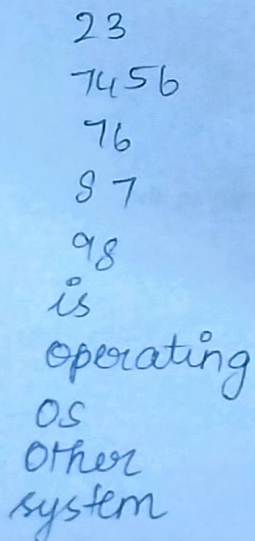 23
7456
76
87
98
is
operating
OS
Other
system